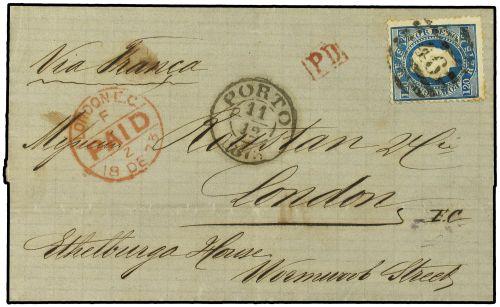 Via França
P.D.
120
LONDON E.C.
F
PAID
2
18 DE 73
PORTO
11
12
1873
London
E.C
Ethelburga House
Wormwood Street